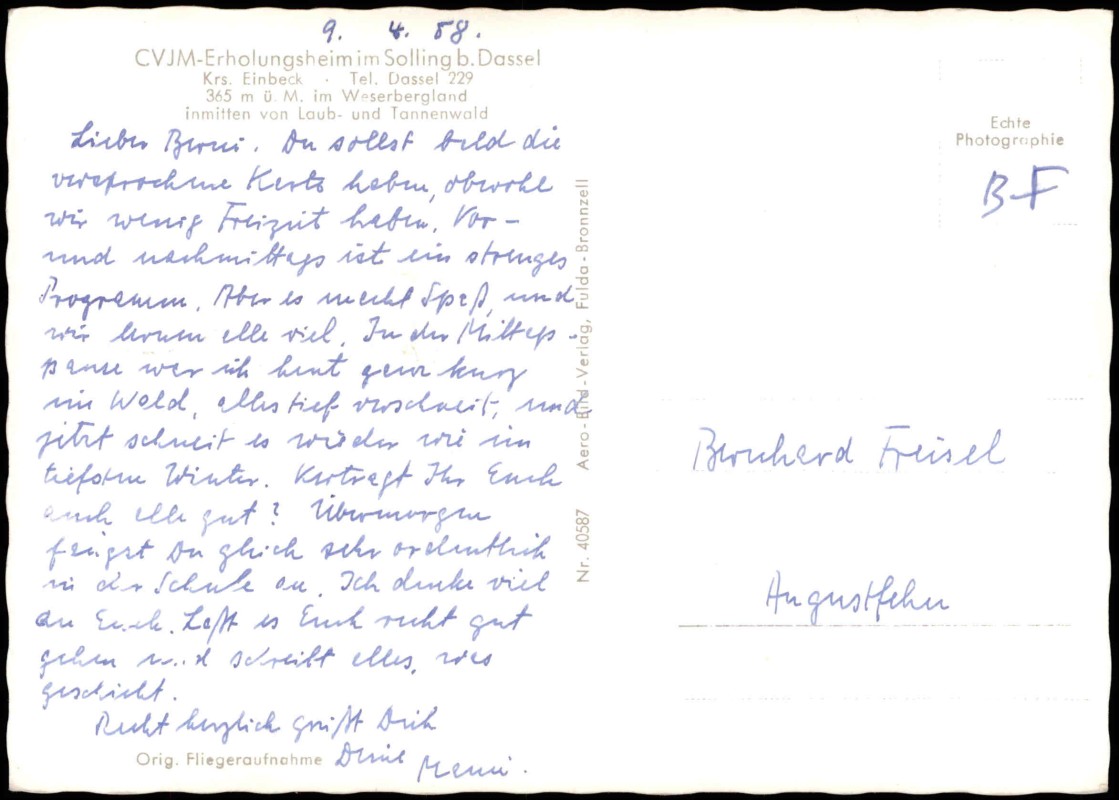 9. 4. 58.
CVJM-Erholungsheim im Solling b. Dassel
Krs. Einbeck · Tel. Dassel 229
365 m ü. M. im Weserbergland
inmitten von Laub- und Tannenwald
Lieber Berni. Du sollst bald die
versprochene Karte haben, obwohl
wir wenig Freizeit haben. Vor-
und nachmittags ist ein strenges
Programm. Aber es macht Spaß, und
wir lernen alle viel. In der Mittags-
pause war ich heut ganz kurz
im Wald, alles tief verschneit, und
jetzt schneit es wieder wie im
tiefsten Winter. Vertragt Ihr Euch
auch alle gut? Übermorgen
fängst Du gleich sehr ordentlich
in der Schule an. Ich denke viel
an Euch. Laßt es Euch recht gut
gehen und schreibt alles, was
geschieht.
Recht herzlich grüßt Dich
Deine Mami.
Orig. Fliegeraufnahme
Nr. 40587 Aero-Bild-Verlag, Fulda-Bronnzell
Echte
Photographie
B-F
Bernhard Freisel
Augustfehn